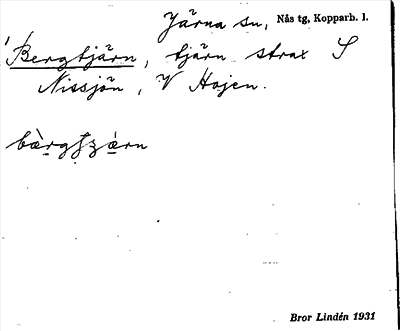 Järna sn, Nås tg, Kopparb. l.
Bergtjärn, tjärn strax S
Nissjön, V Hojen.
Bror Lindén 1931